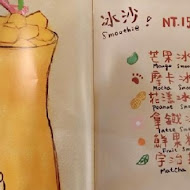 冰沙!
Smoothie
NT.15
芒果冰
Mango Smo
摩卡冰
Mocha Smoo
花生冰
Peanut Smo
拿鐵冰
Latte Smo
鮮果冰
Fruit Smoo
宇治
Matcha